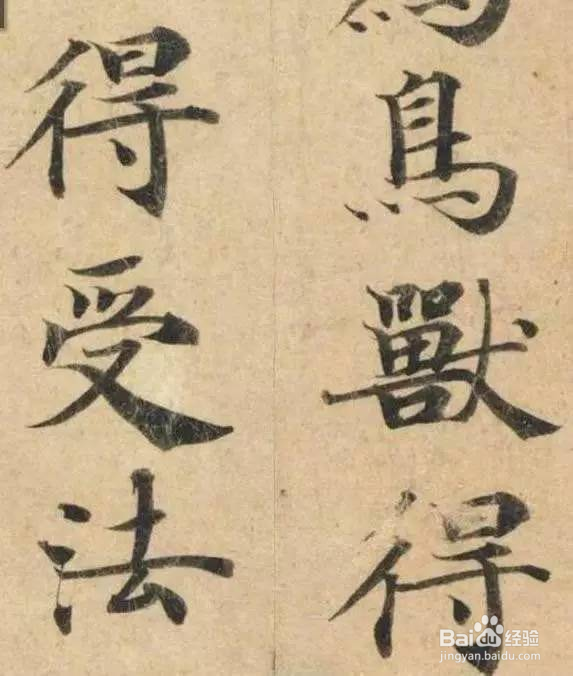 鳥獸得
得受法
Baidu经验
jingyan.baidu.com